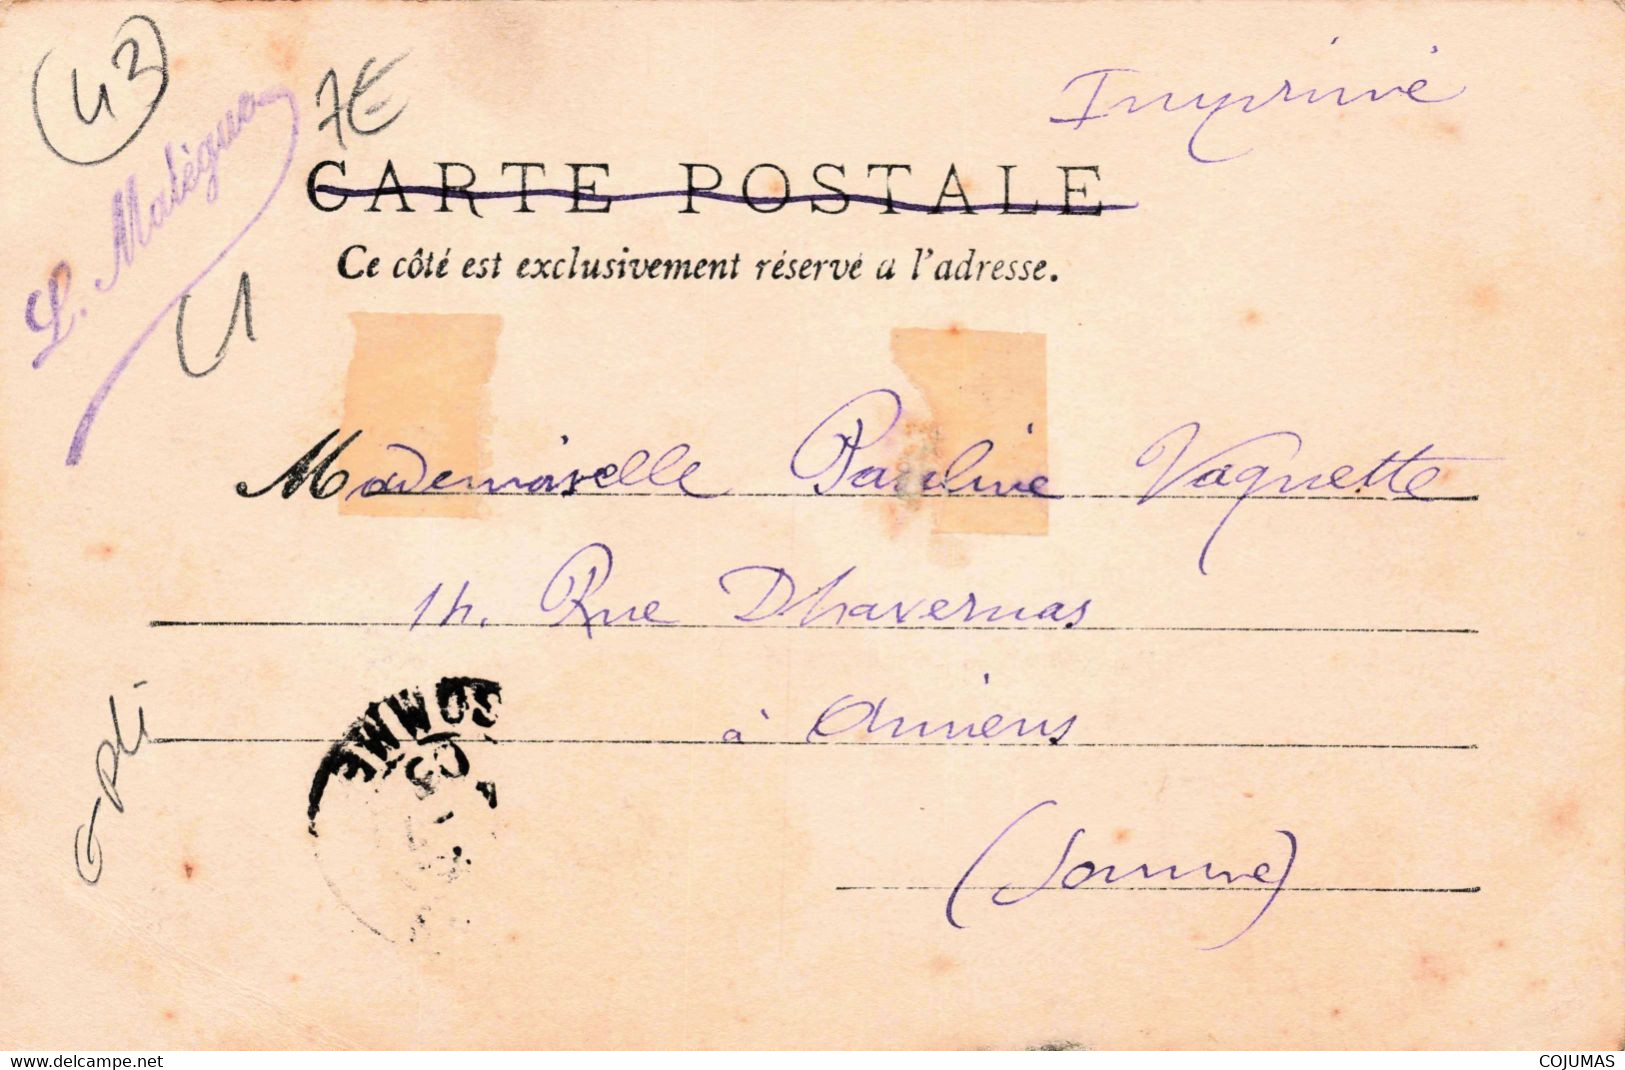 43
7€
Imprimé
L. Malègue
CARTE POSTALE
Ce côté est exclusivement réservé a l'adresse.
Mademoiselle Pauline Vaquette
14. Rue Dhavernas
à Amiens
(Somme)
SOMME
03
G pli
www.delcampe.net
COJUMAS